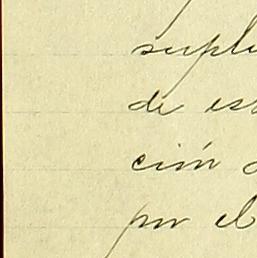 suplu
de es
ción
por el